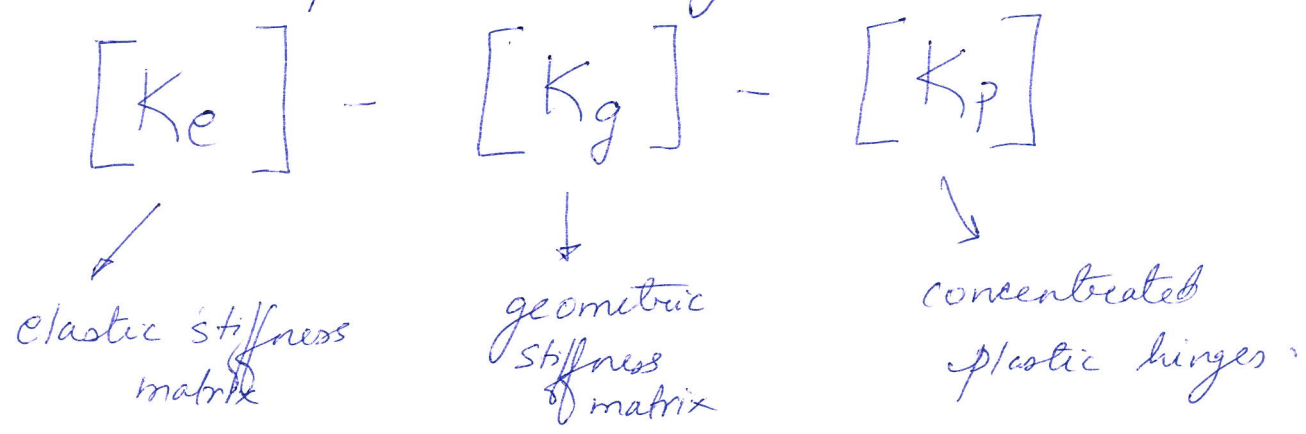 [Ke] - [Kg] - [Kp]
elastic stiffness matrix
geometric stiffness matrix
concentrated plastic hinges.